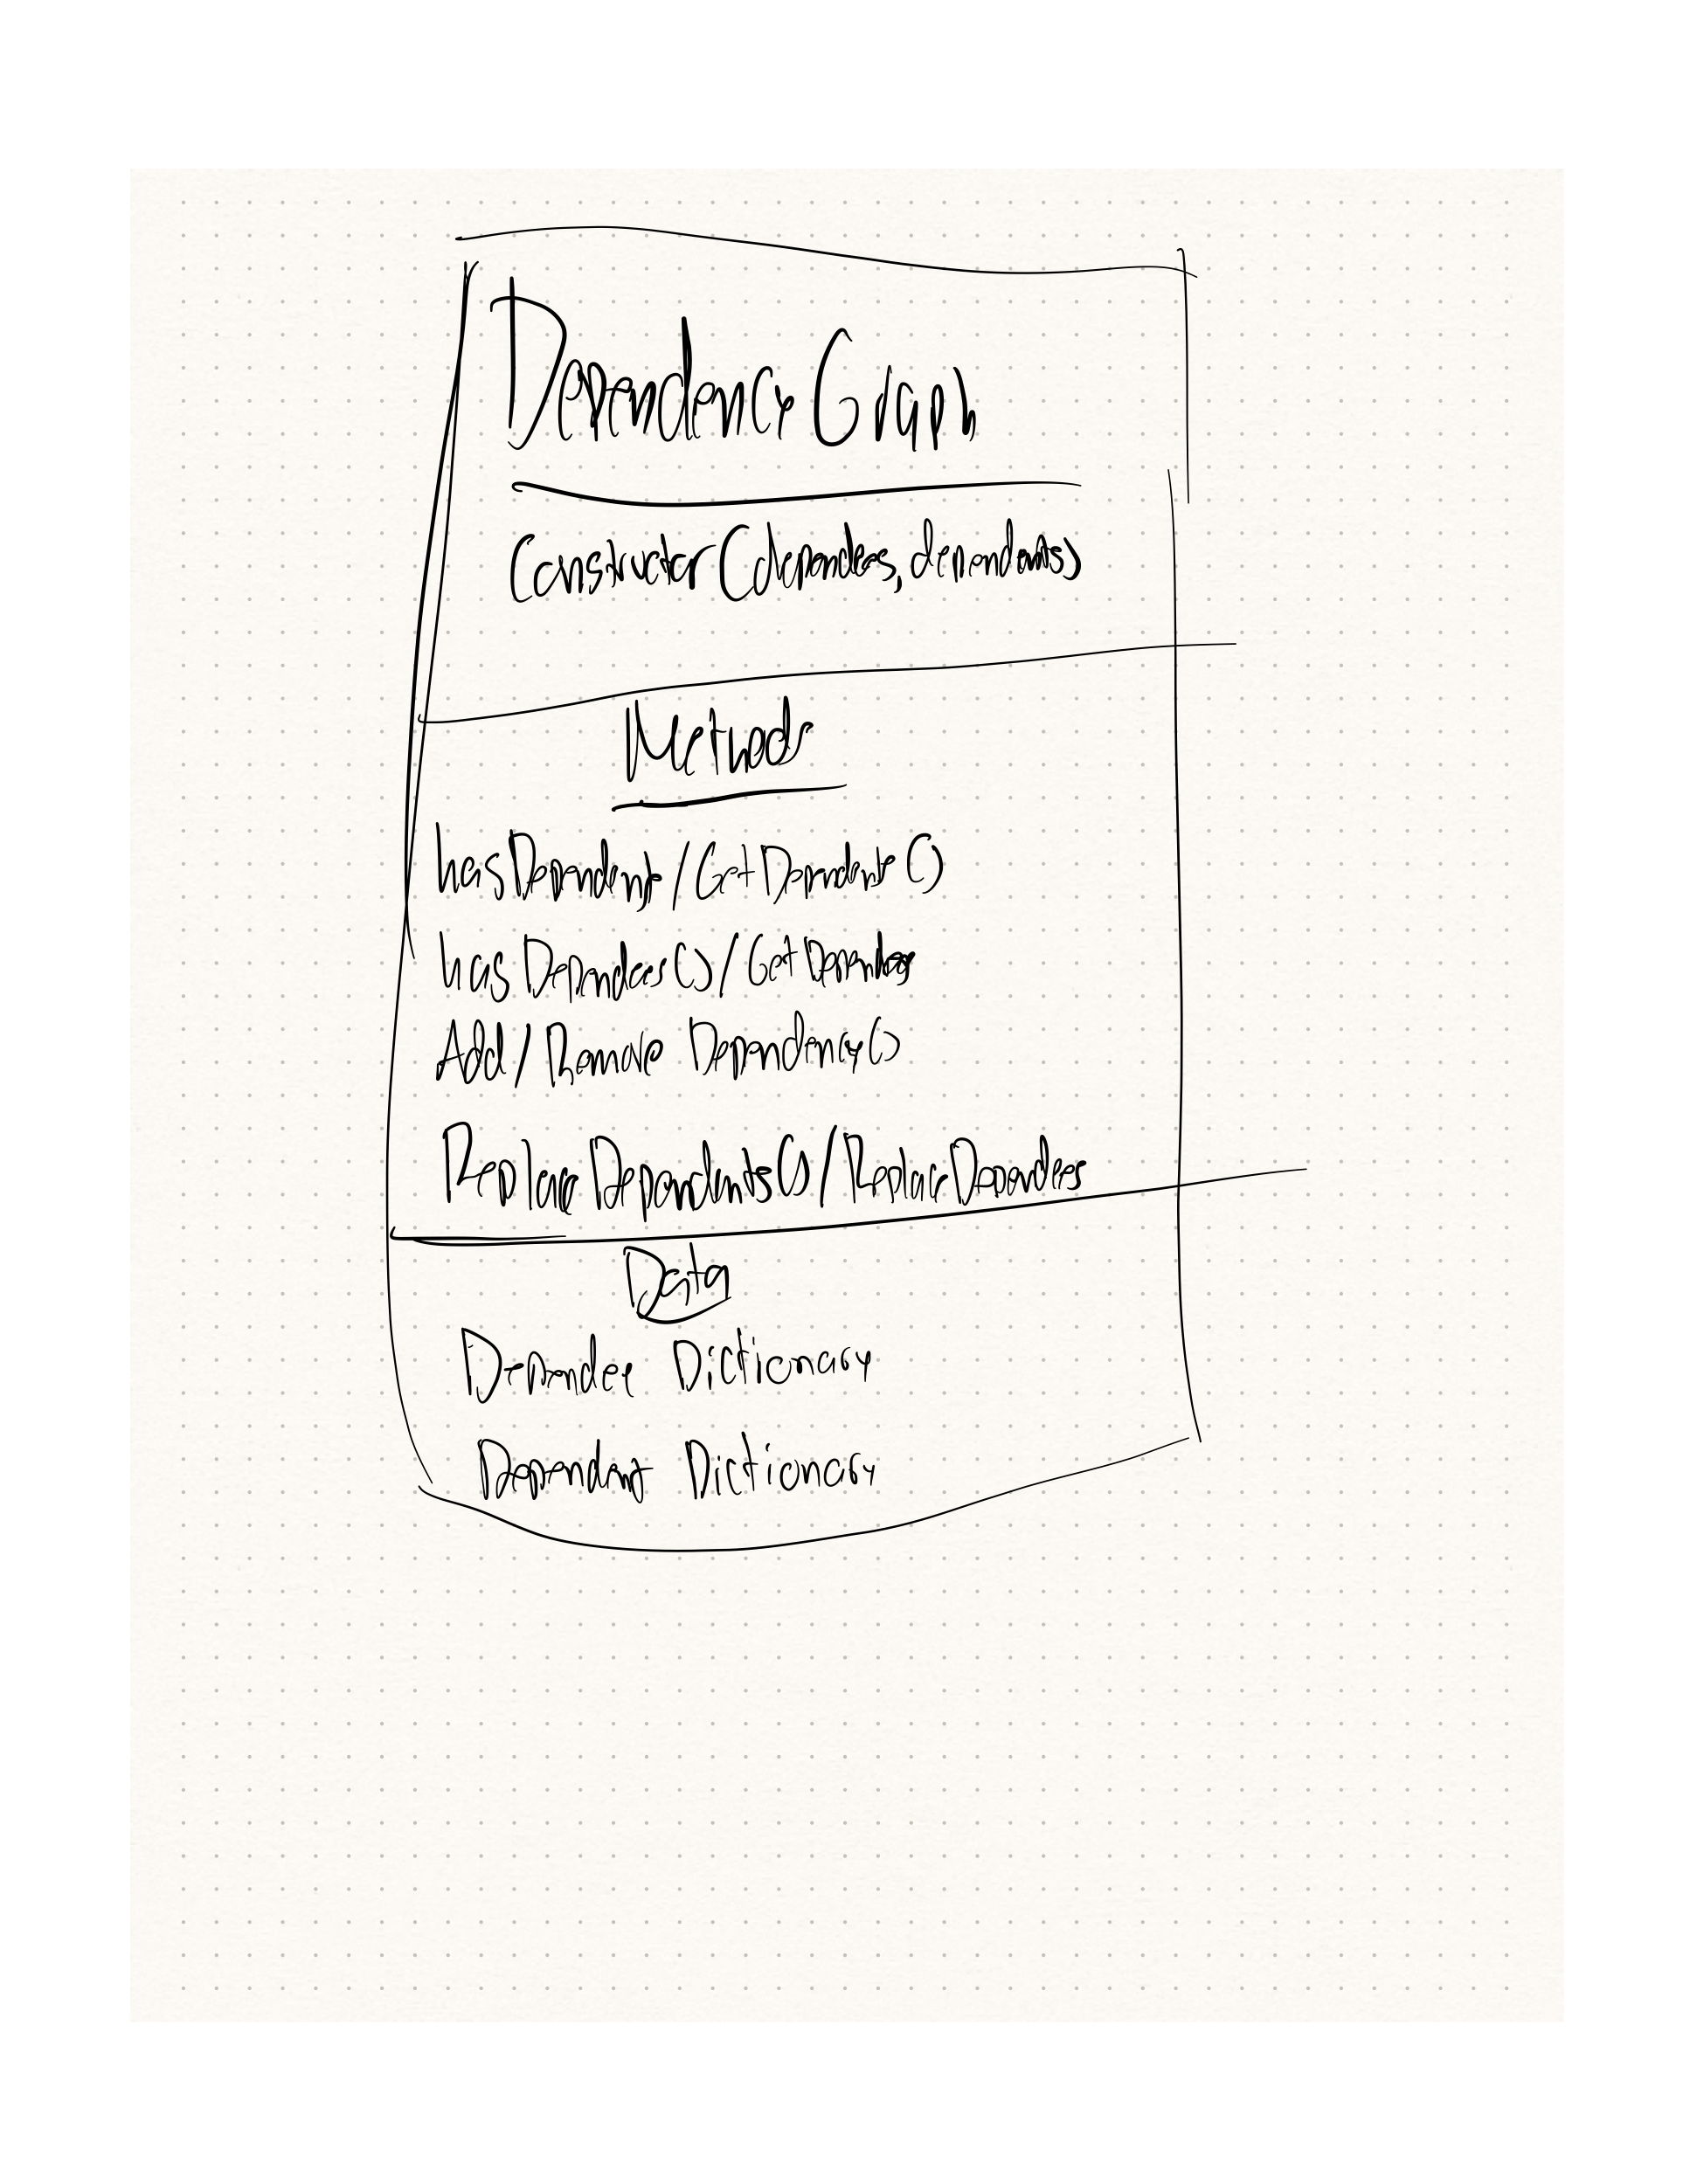 Dependency Graph
Constructor (dependees, dependents)
Methods
hasDependents/GetDependents()
hasDependees()/GetDependees
Add/Remove Dependency()
ReplaceDependents()/ReplaceDependees
Data
Dependee Dictionary
Dependent Dictionary